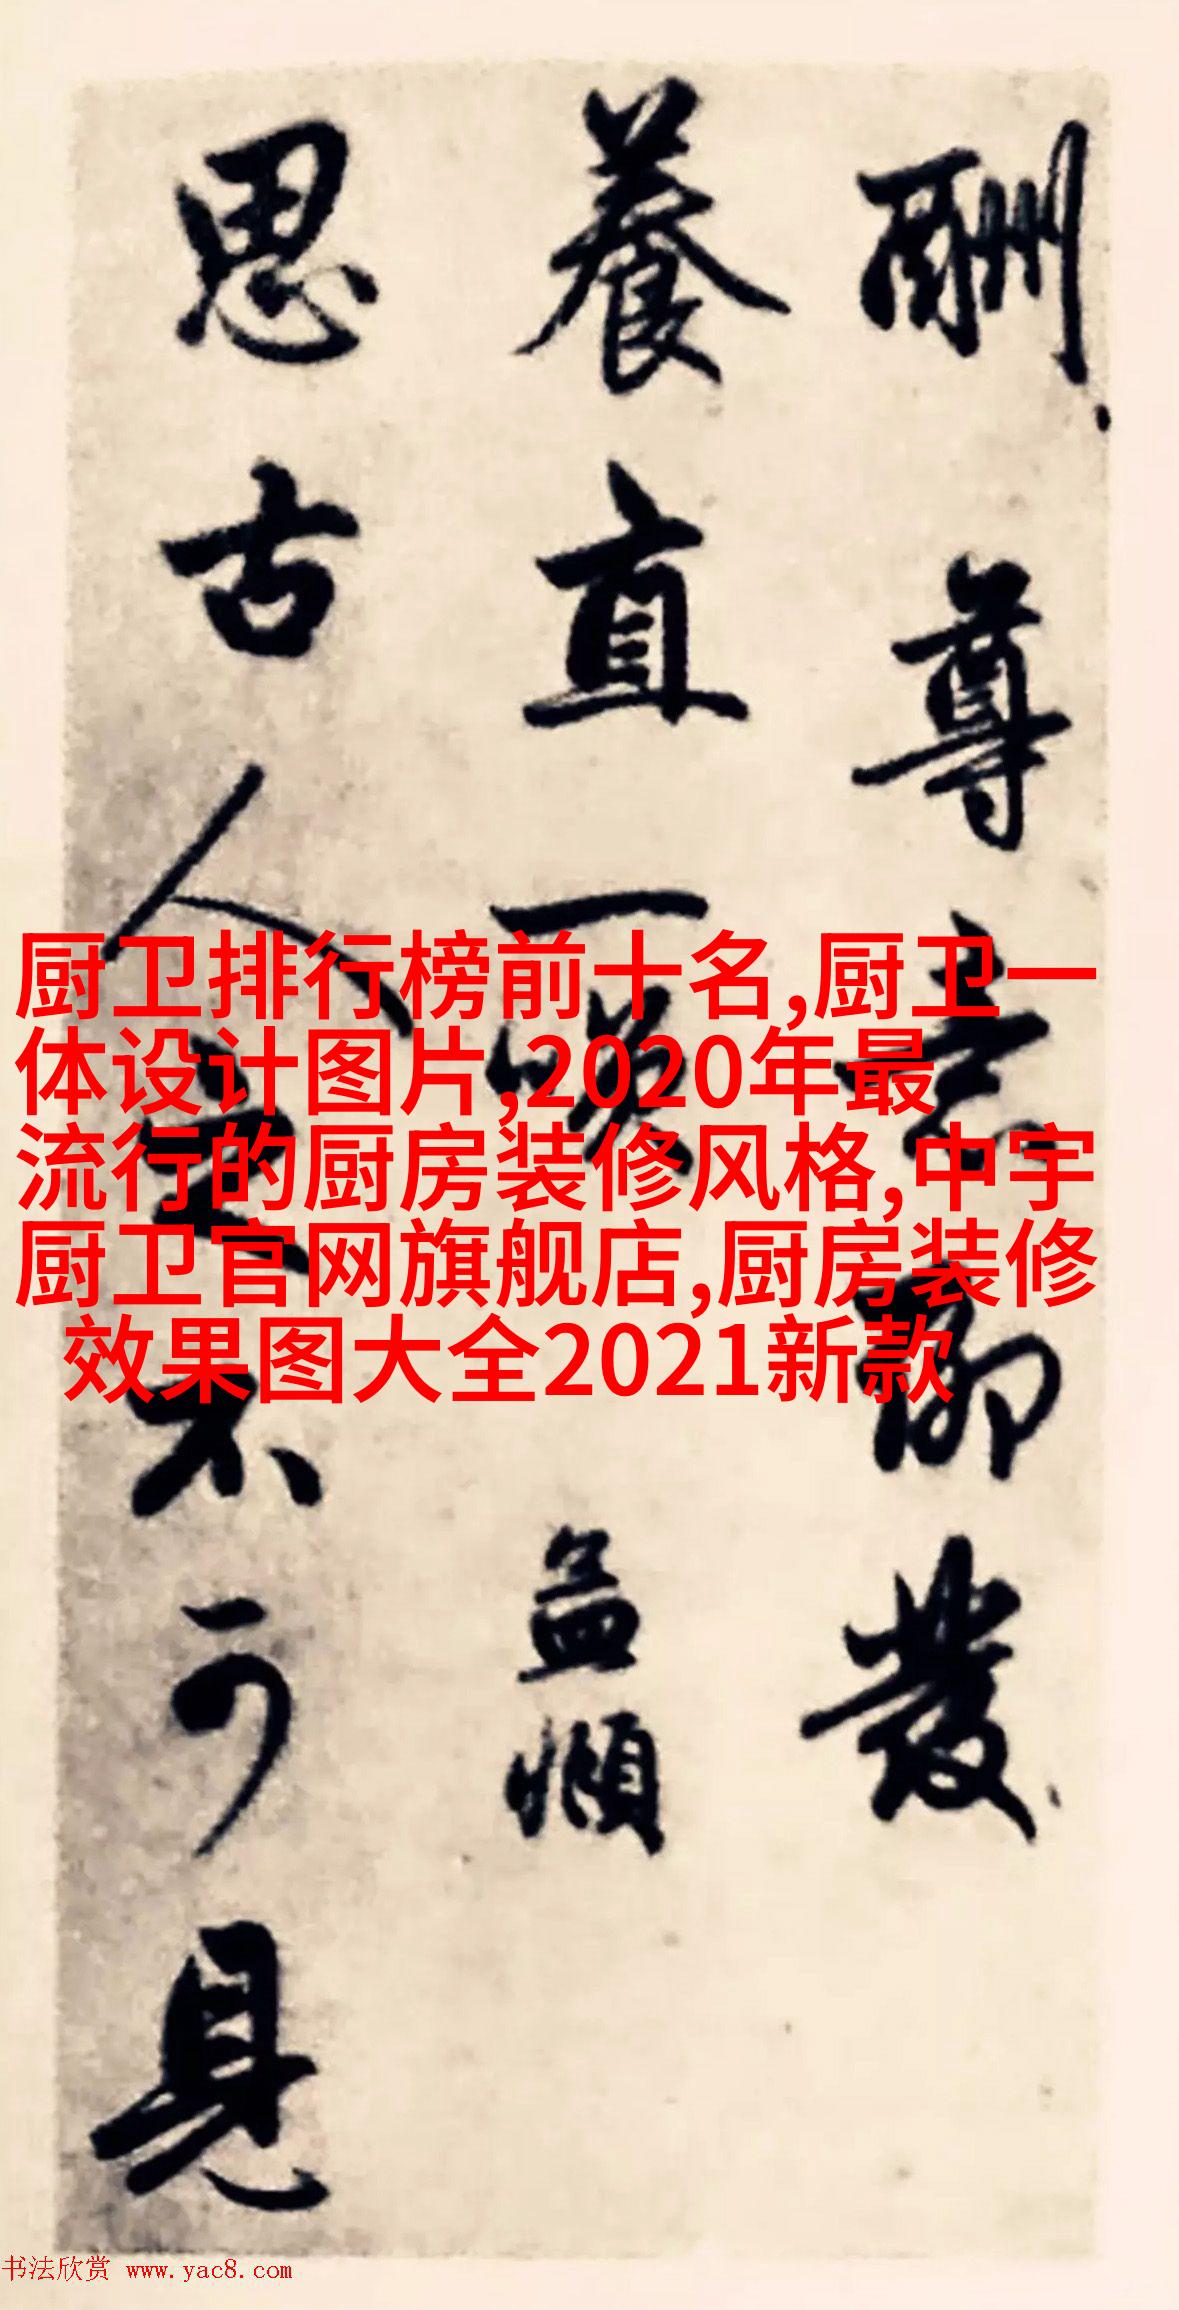 酬尊意聊發
養直一
孟頫
思古人不可見
厨卫排行榜前十名,厨卫一
体设计图片,2020年最
流行的厨房装修风格,中宇
厨卫官网旗舰店,厨房装修
效果图大全2021新款
书法欣赏 www.yac8.com